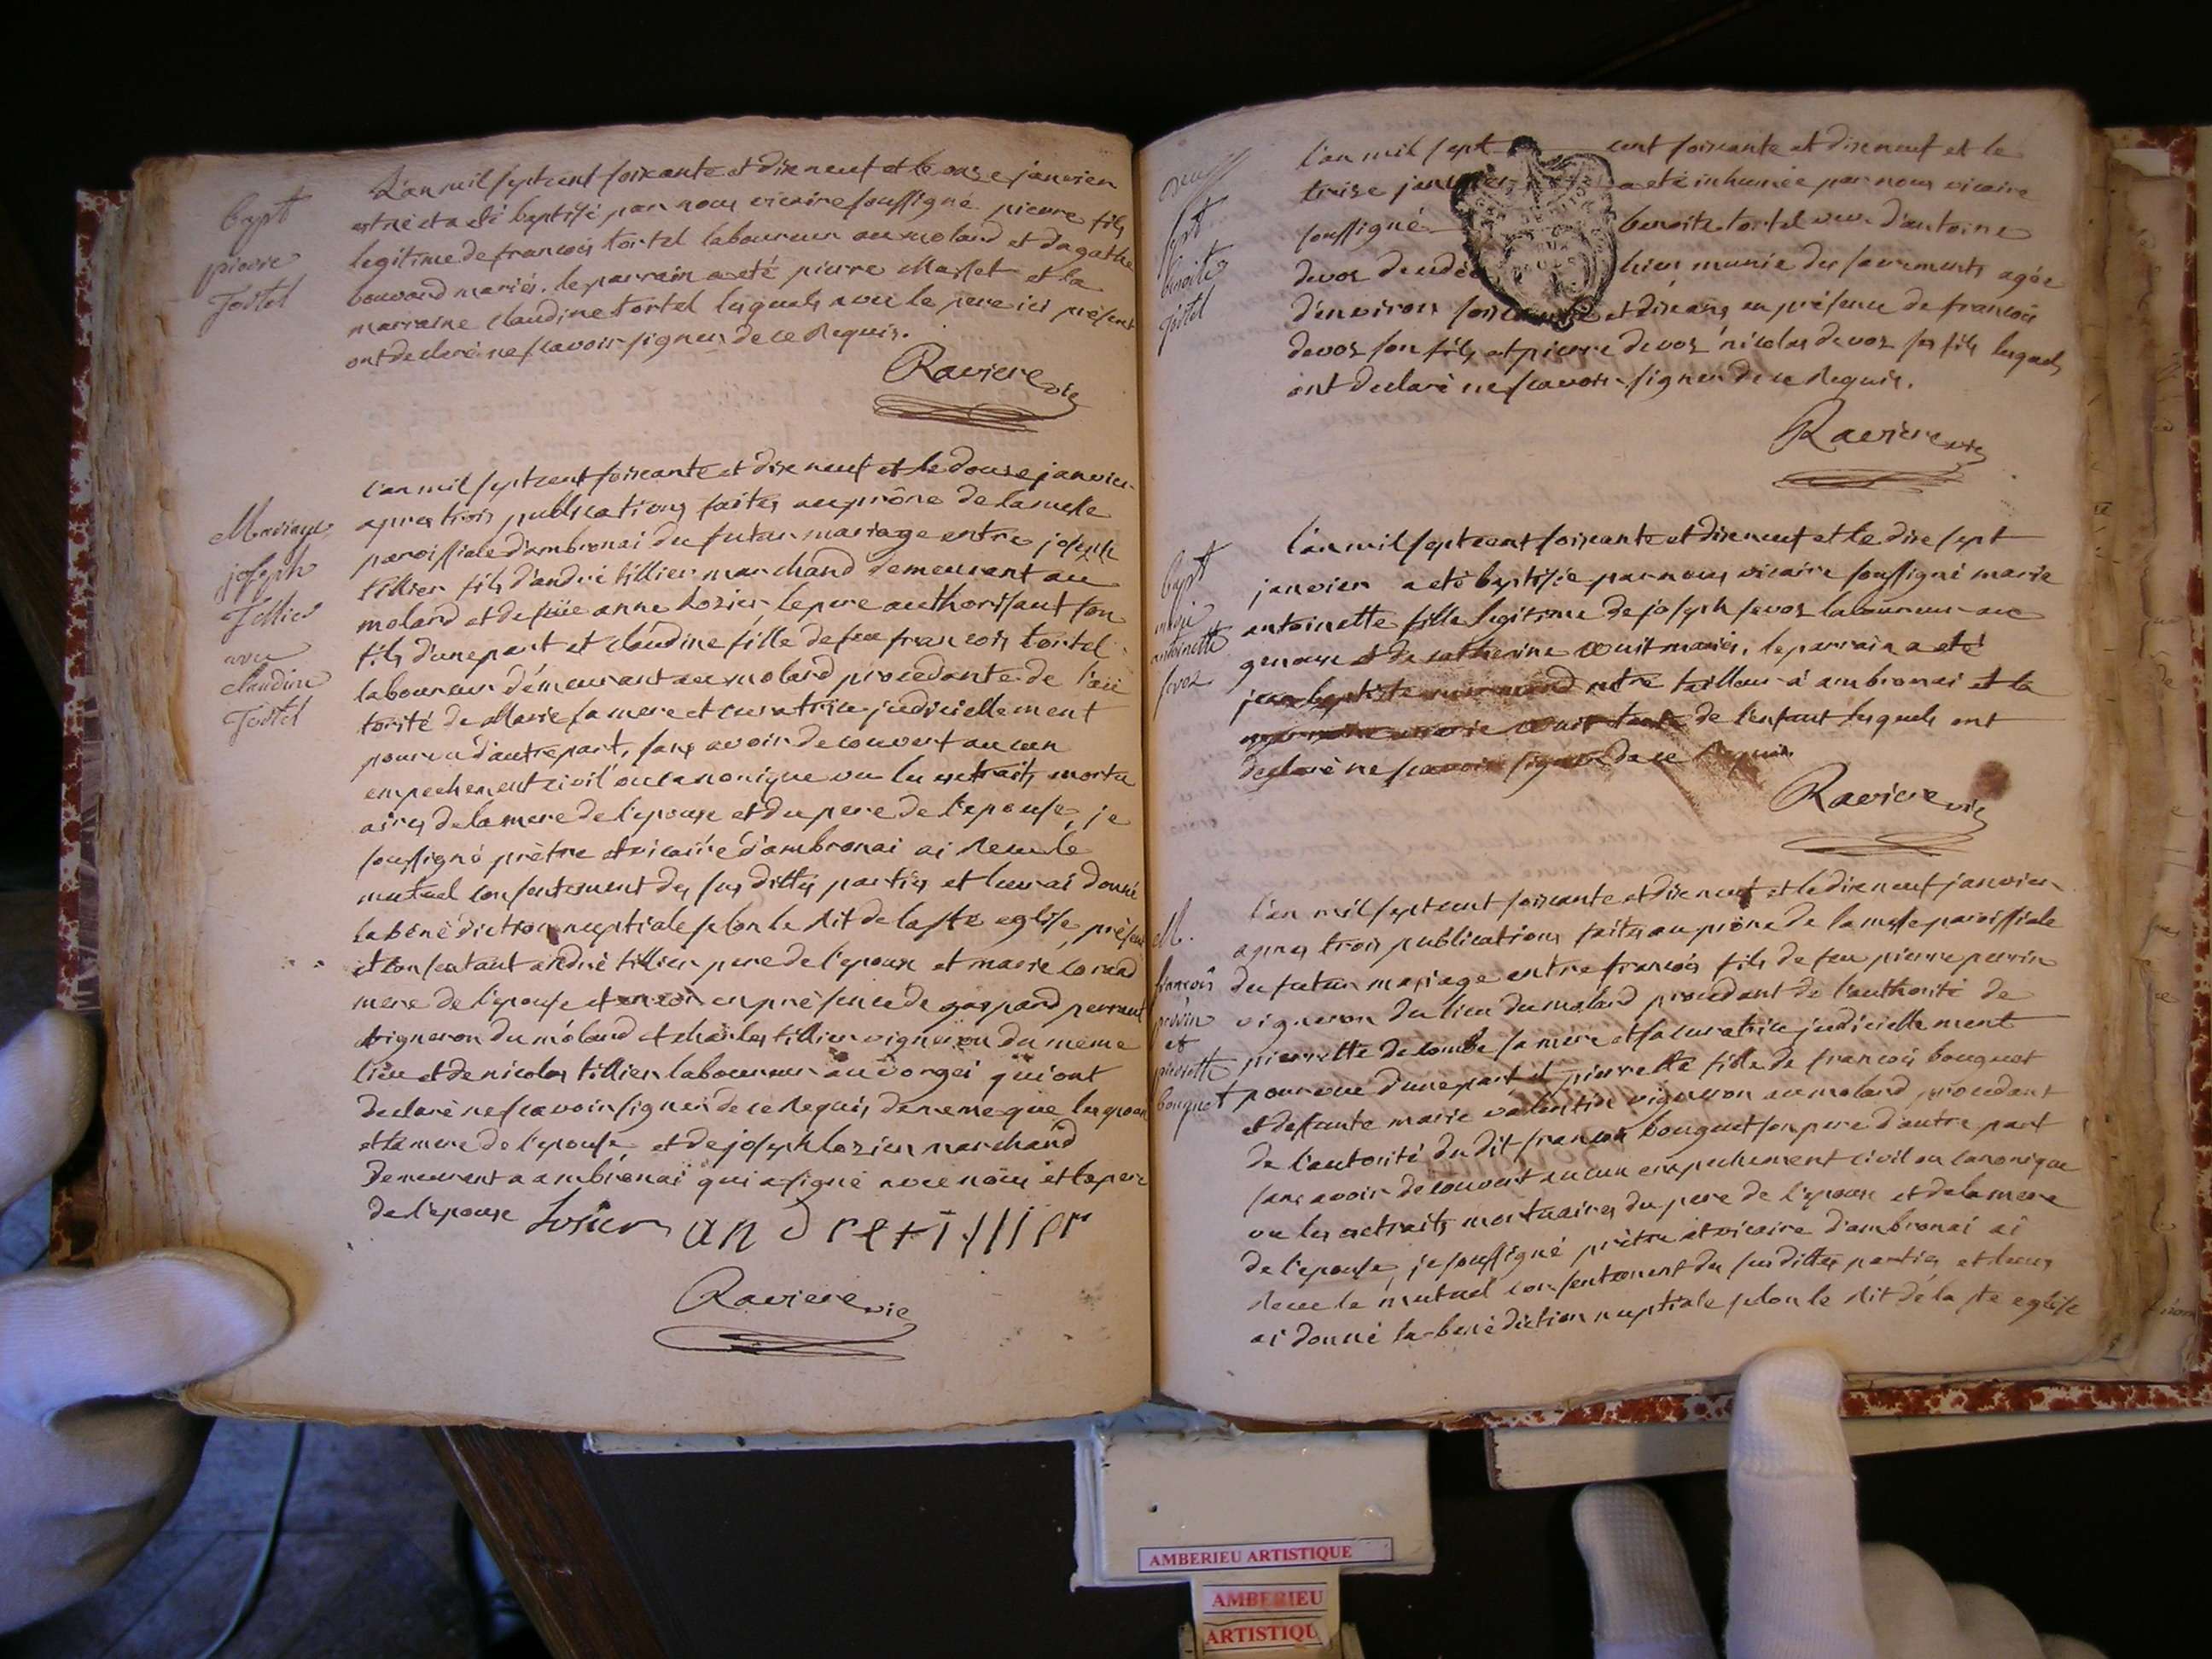 bapt
pierre
Tortel
L'an mil sept cent soixante et dix neuf et le onze janvier
est né et a été baptisé par nous vicaire soussigné pierre fils
legitime de francois tortel laboureur au molard et d'agathe
bouvard mariés. le parrain a eté pierre Masset et la
marraine claudine tortel lesquels avec le pere ici présent
ont declaré ne scavoir signer de ce Requis.
Raviere vic
Mariage
joseph
Tillier
avec
claudine
Tortel
l'an mil sept cent soixante et dix neuf et le douze janvier
apres trois publications faites au prône de la messe
paroissiale d'ambronai du futur mariage entre joseph
tillier fils d'andré tillier marchand demeurant au
molard et de füe anne Lozier, le pere authorisant son
fils d'une part et claudine fille de feu francois tortel
laboureur demeurant au molard procedante de l'au
torité de Marie sa mere et curatrice judiciellement
pourvu d'autre part, sans avoir decouvert aucun
empechement civil ou canonique vu les extraits mortu
aires de la mere de l'epoux et du pere de l'epouse, je
soussigné prètre et vicaire d'ambronai ai Recu le
mutuel consentement des sus dittes parties et leur ai donné
la bénédiction nuptiale selon le Rit de la ste eglise, présent
et consentant andré tillier pere de l'epoux et marie
mere de l'epouse et encor en présence de gaspard
vigneron du molard et charles tillier vigneron du meme
lieu et de nicolas tillier laboureur au vorgei qui ont
declaré ne scavoir signer de ce Requis, de meme que les epoux
et la mere de l'epouse et de joseph lozier marchand
demeurent a ambronai qui a signé avec nous et le pere
de l'epoux Losier andre tillier
Raviere vic
sept
benoite
Tortel
l'an mil sept cent soixante et dix neuf et le
treize janvier a eté inhumée par nous vicaire
soussigné benoite tortel veuve d'antoine
devos hier munie des sacrements agée
d'environ soixante et dix ans en présence de francois
devos son fils et pierre devos nicolas devos ses fils lesquels
ont declaré ne scavoir signer de ce Requis.
Raviere vic
bapt
marie
antoinette
l'an mil sept cent soixante et dix neuf et le dix sept
janvier a eté baptisée par nous vicaire soussigné marie
antoinette fille legitime de joseph laboureur au
genoux et de catherine mariés, le parrain a eté
jean baptiste maitre tailleur a ambronai et la
marraine marie tante de l'enfant lesquels ont
declaré ne scavoir signer de ce Requis.
Raviere vic
M.
francois
perrin
et
pierrette
bouquet
l'an mil sept cent soixante et dix neuf et le dix neuf janvier
apres trois publications faites au prône de la messe paroissiale
du futur mariage entre francois fils de feu pierre perrin
vigneron du lieu du molard procedant de l'authorité de
pierrette decombe sa mere et sa curatrice judiciellement
pourvue d'une part et pierrette fille de francois bouquet
et deffunte marie valentin vigneron au molard, procedant
de l'autorité du dit francois bouquet son pere d'autre part
sans avoir decouvert aucun empechement civil ou canonique
vu les extraits mortuaires du pere de l'epoux et de la mere
de l'epouse, je soussigné prètre et vicaire d'ambronai ai
Recu le mutuel consentement des sus dittes parties et leur
ai donné la bénédiction nuptiale selon le Rit de la ste eglise
AMBERIEU ARTISTIQUE
AMBERIEU
ARTISTIQU